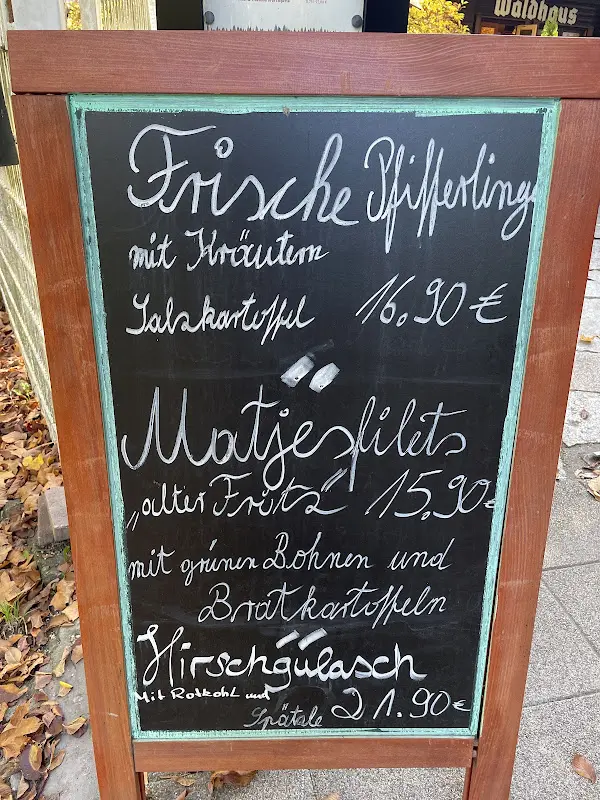 Waldhaus
Frische Pfifferlinge
mit Kräutern
Salzkartoffel 16.90 €
Matjesfilets
„alter Fritz" 15.90 €
mit grünen Bohnen und
Bratkartoffeln
Hirschgulasch
Mit Rotkohl und
Spätzle 21.90 €